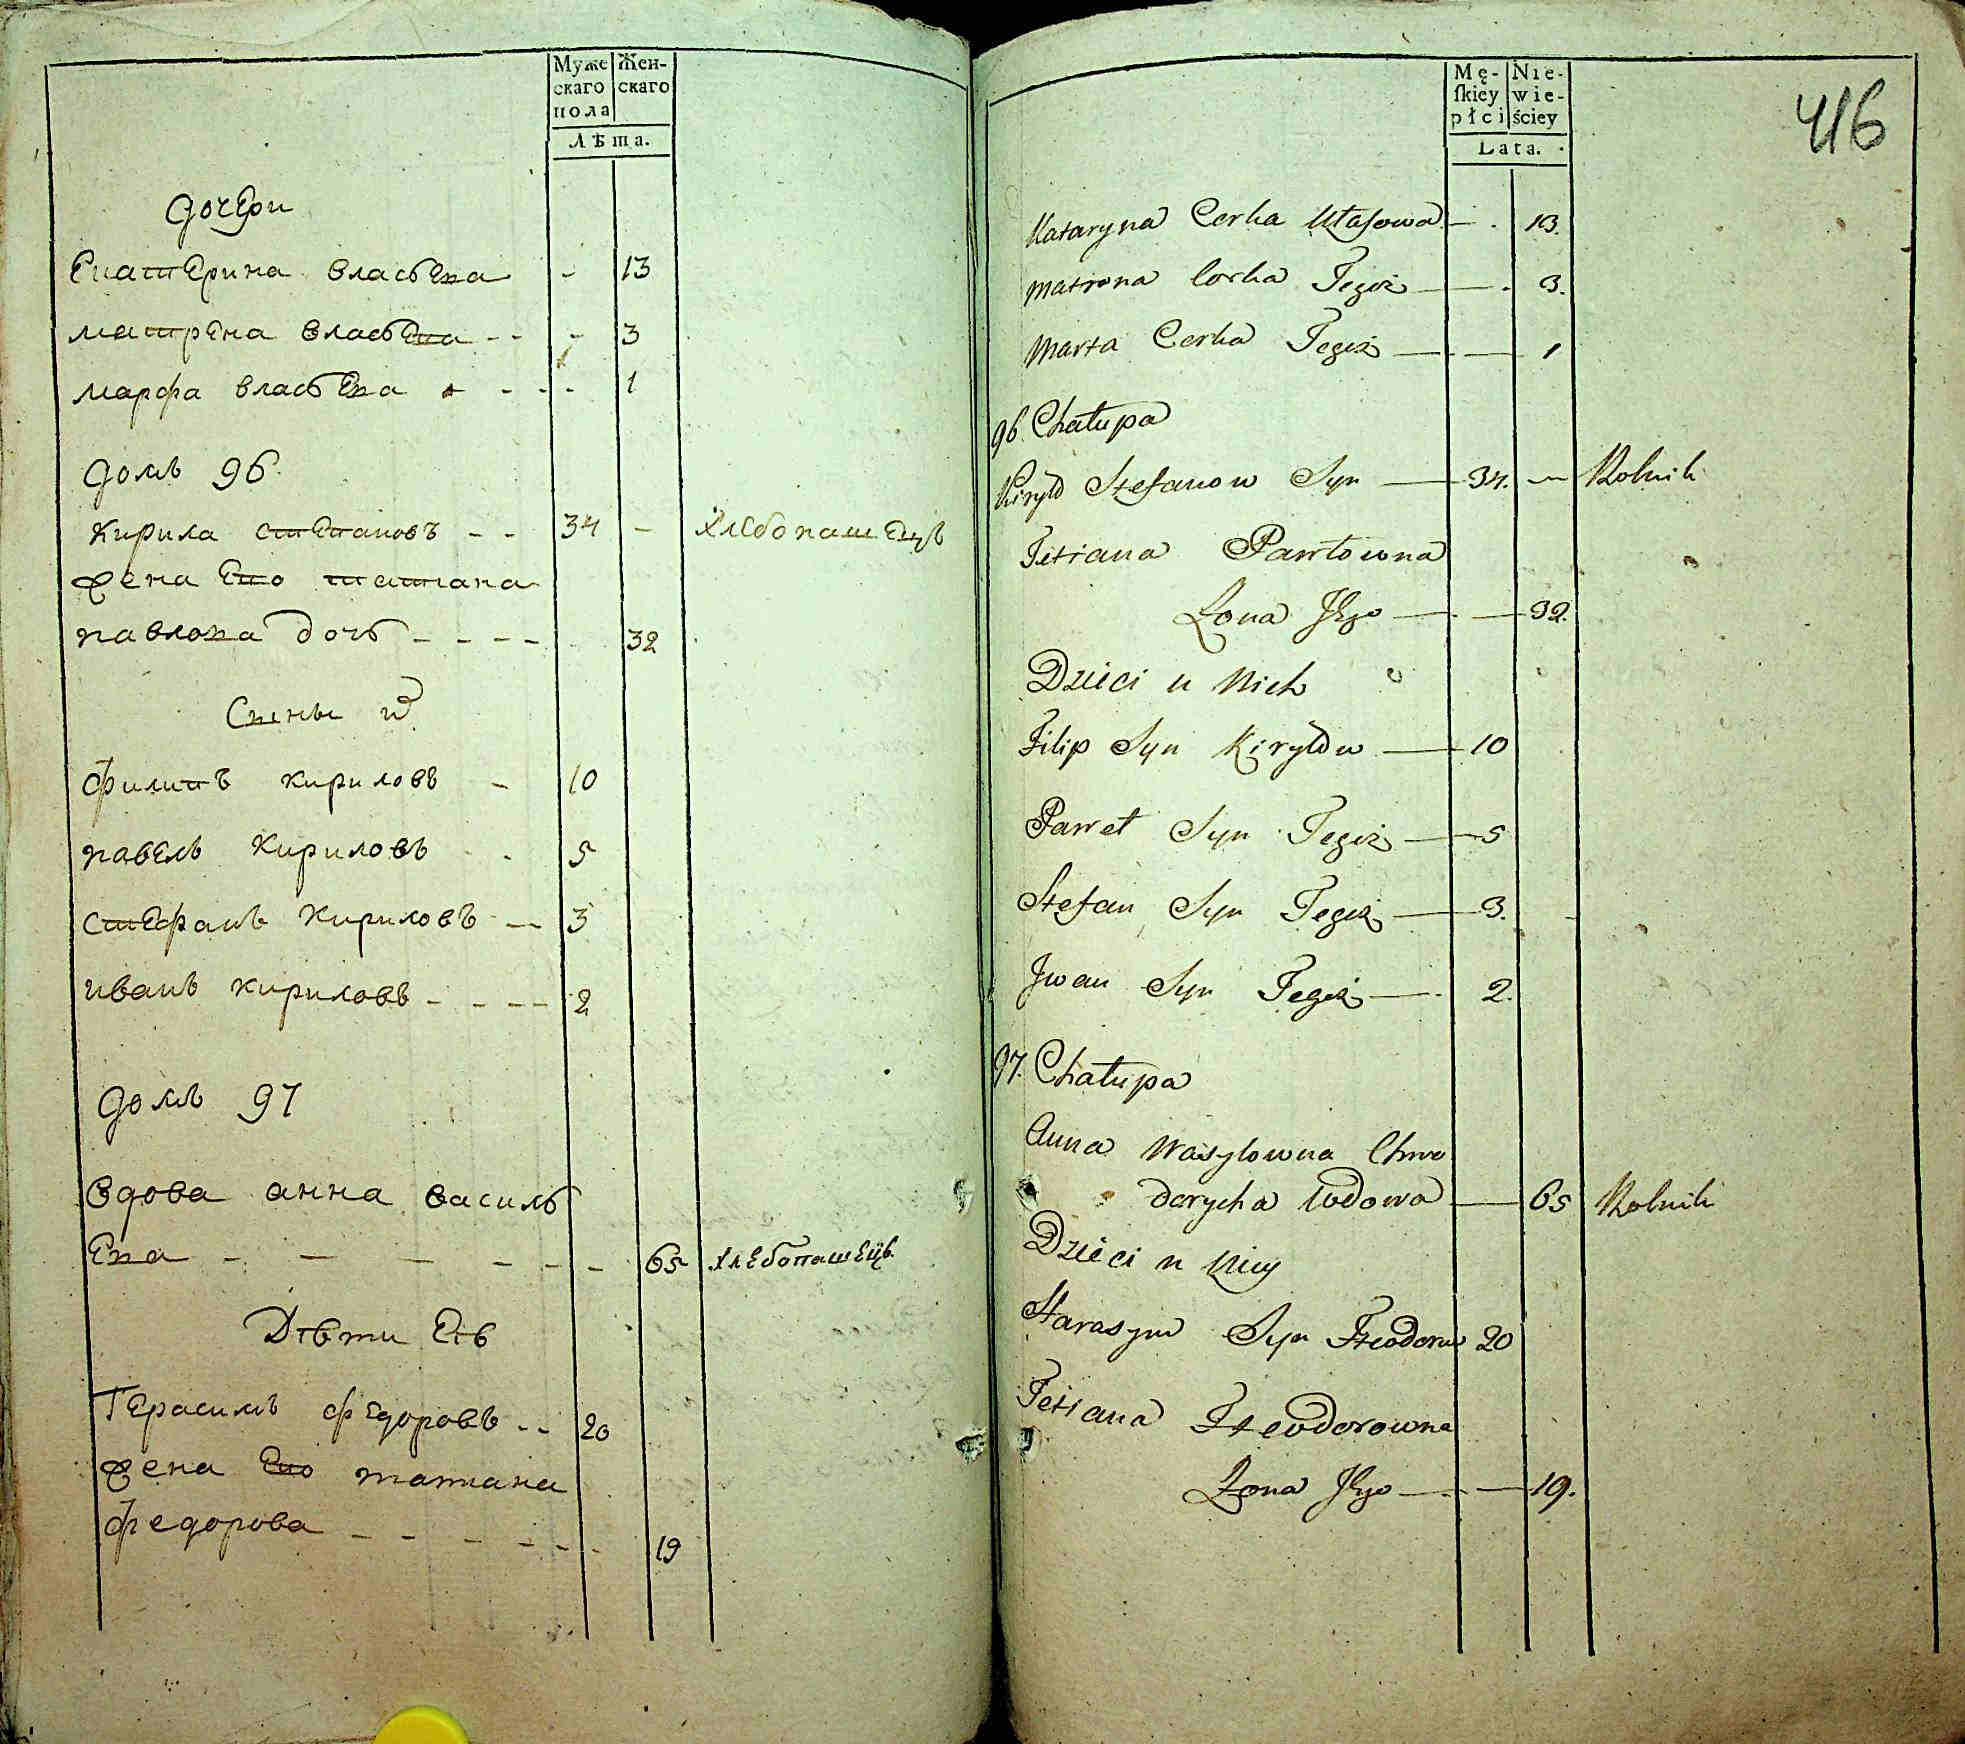 Муже
скаго
пола
Жен-
скаго
Лѣта.
дочери
Екатерина власьева - 13
матрена власьева - - - 3
марфа власьева - - - - 1
домъ 96.
кирила степановъ - - 34 - хлебопашецъ
жена Его татиана
павлова дочь - - - - 32
Сыны их
филипъ кириловъ - 10
павелъ кириловъ - - 5
стефанъ кириловъ - - 3
иванъ кириловъ - - - - 2
домъ 97
вдова анна василь
Ева - - - - - - 65 хлебопашецъ
Дѣти Еѣ
Герасимъ федоровъ - - 20
жена Его татиана
федорова - - - - - - 19
Mę-
ſkiey
płci
Nie-
wie-
ściey
Lata.
416
Kataryna Corka Własowa — . 13.
Matrona Corka Tegoż — . 3.
Marta Corka Tegoż — — 1
96. Chałupa
Kiryło Stefanow Syn — 34. — Rolnik
Tetiana Pawłowna
Zona Jego — — 32.
Dzieci u Nich
Filip Syn Kiryłow — 10
Paweł Syn Tegoż — 5
Stefan Syn Tegoż — 3.
Jwan Syn Tegoż — 2.
97. Chałupa
Anna Wasylowna Chwe
dorycha Wdowa — 65 Rolnik
Dzieci u Niey
Harasym Syn Fteodorow 20
Tetiana Fteodorowna
Zona Jego — — 19.